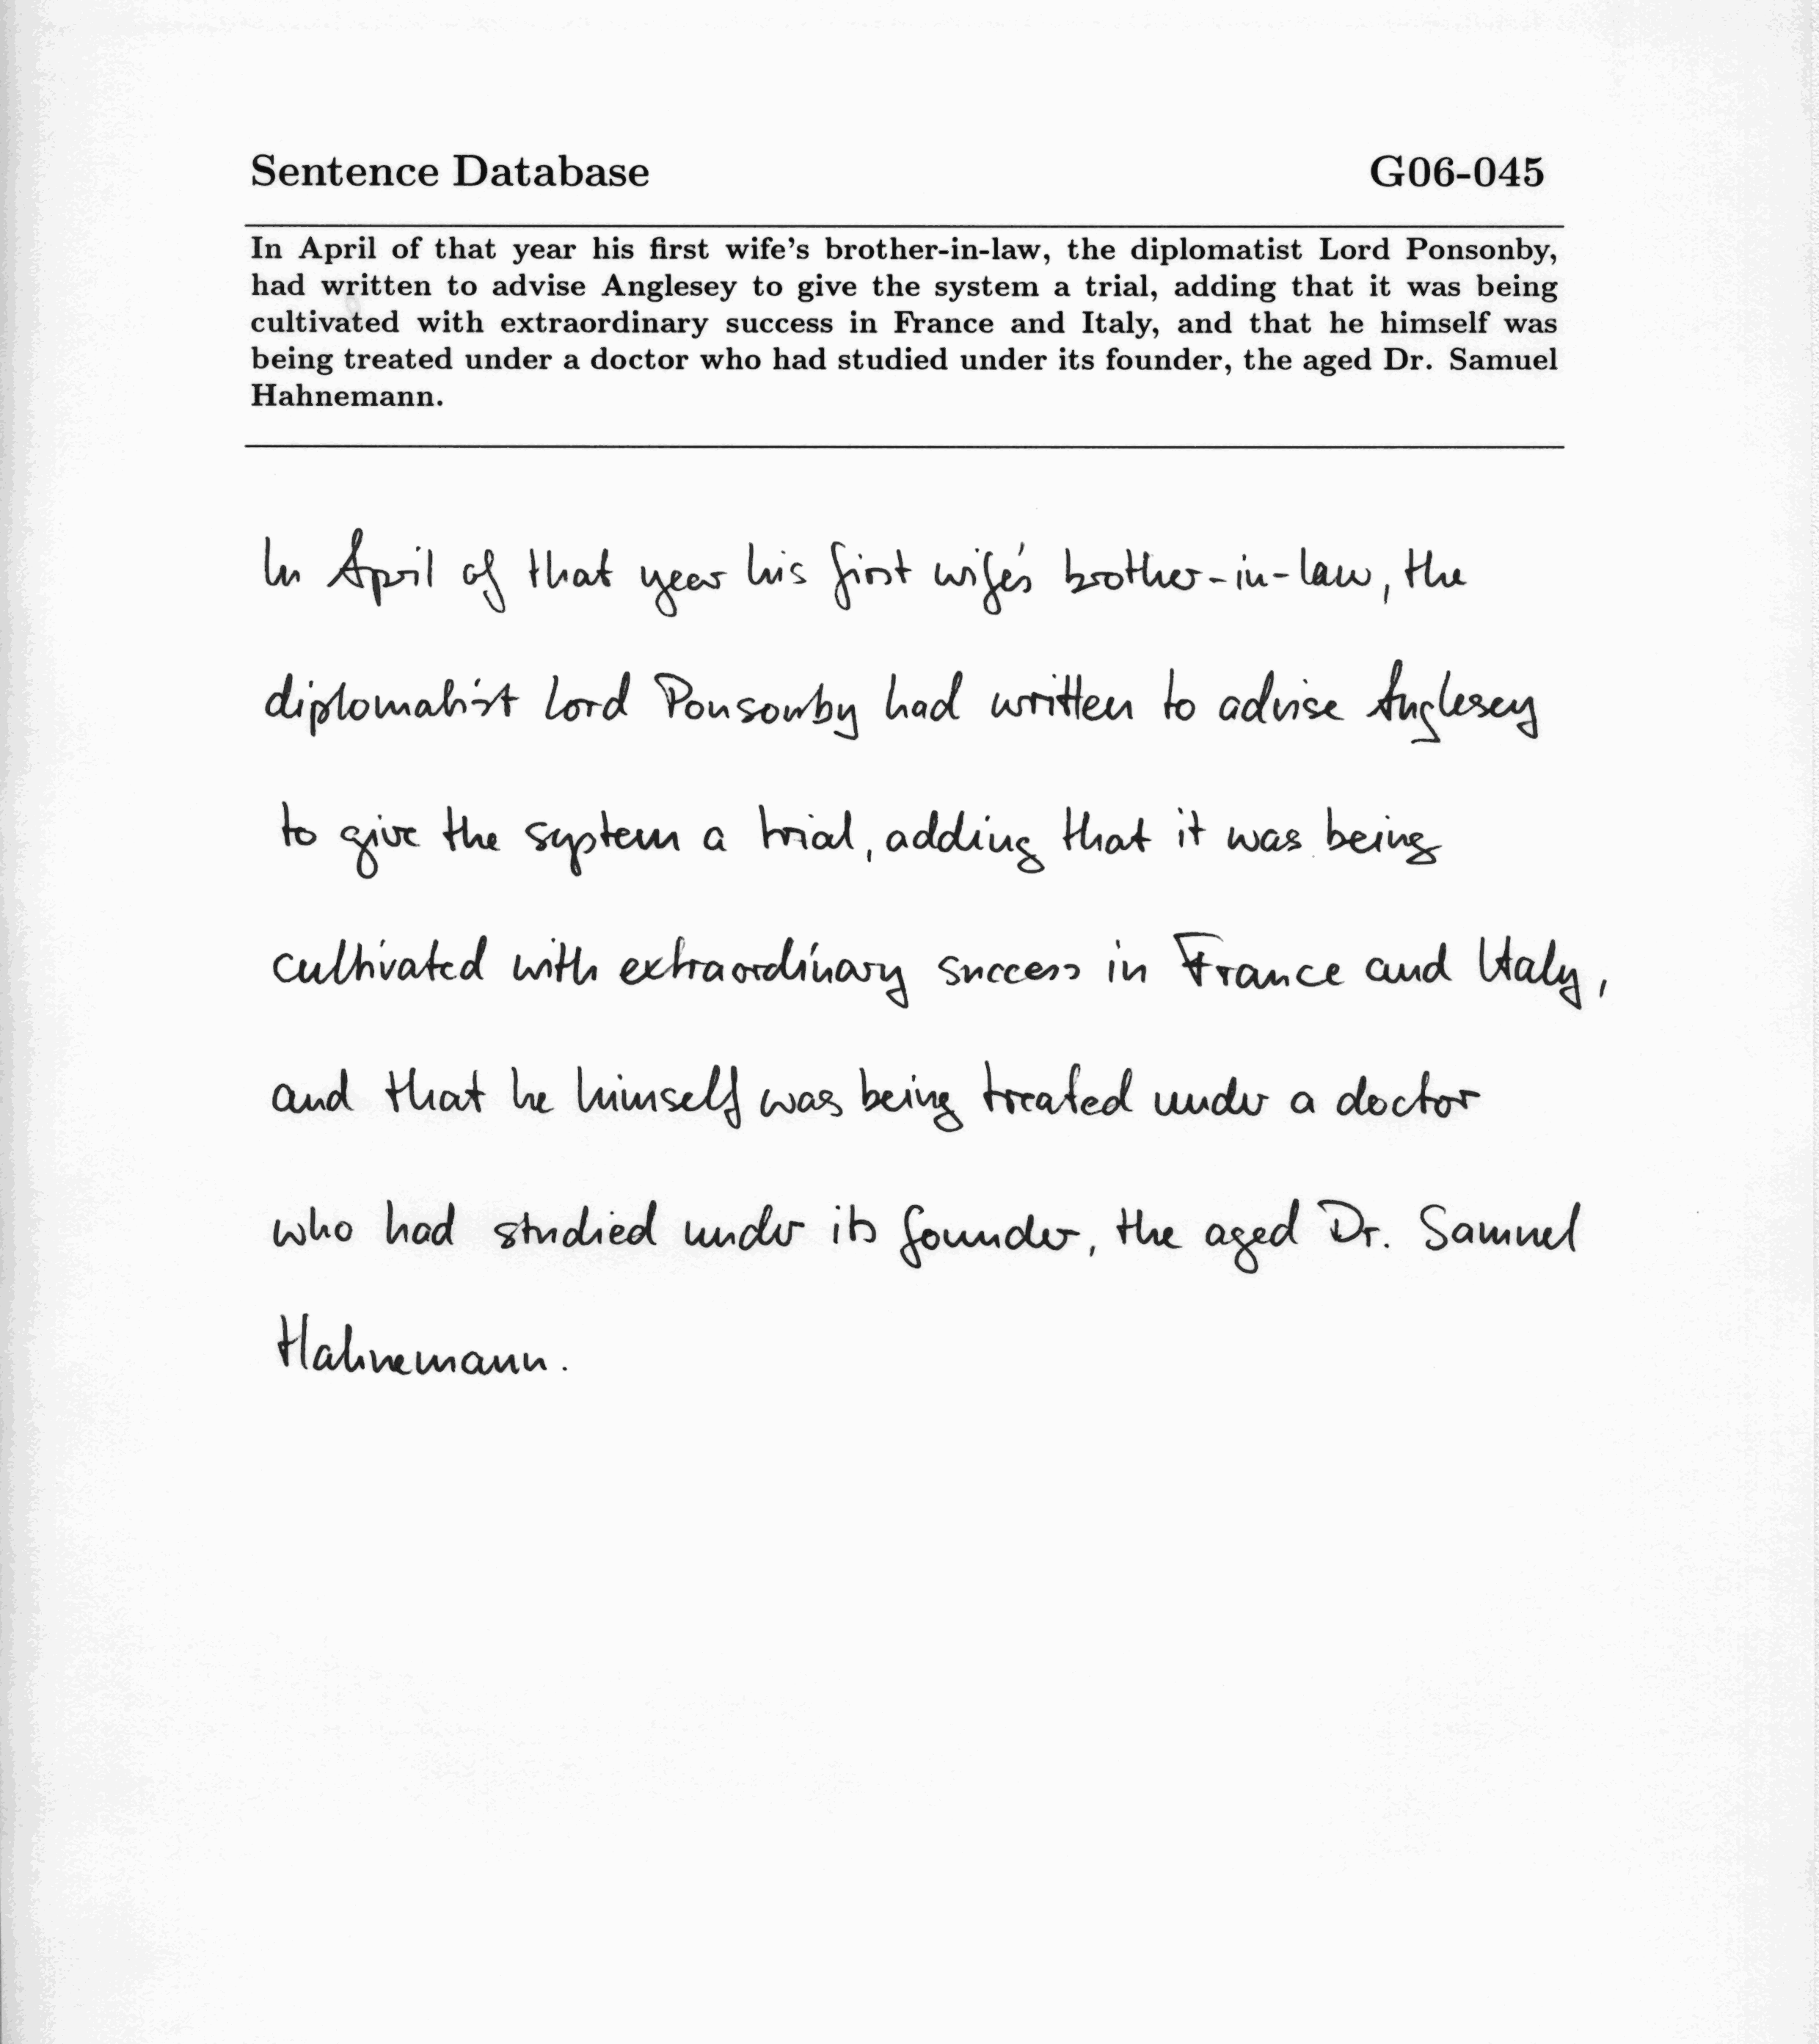 Sentence Database G06-045
In April of that year his first wife's brother-in-law, the diplomatist Lord Ponsonby,
had written to advise Anglesey to give the system a trial, adding that it was being
cultivated with extraordinary success in France and Italy, and that he himself was
being treated under a doctor who had studied under its founder, the aged Dr. Samuel
Hahnemann.
In April of that year his first wife's brother-in-law, the
diplomatist Lord Ponsonby had written to advise Anglesey
to give the system a trial, adding that it was being
cultivated with extraordinary success in France and Italy,
and that he himself was being treated under a doctor
who had studied under its founder, the aged Dr. Samuel
Hahnemann.